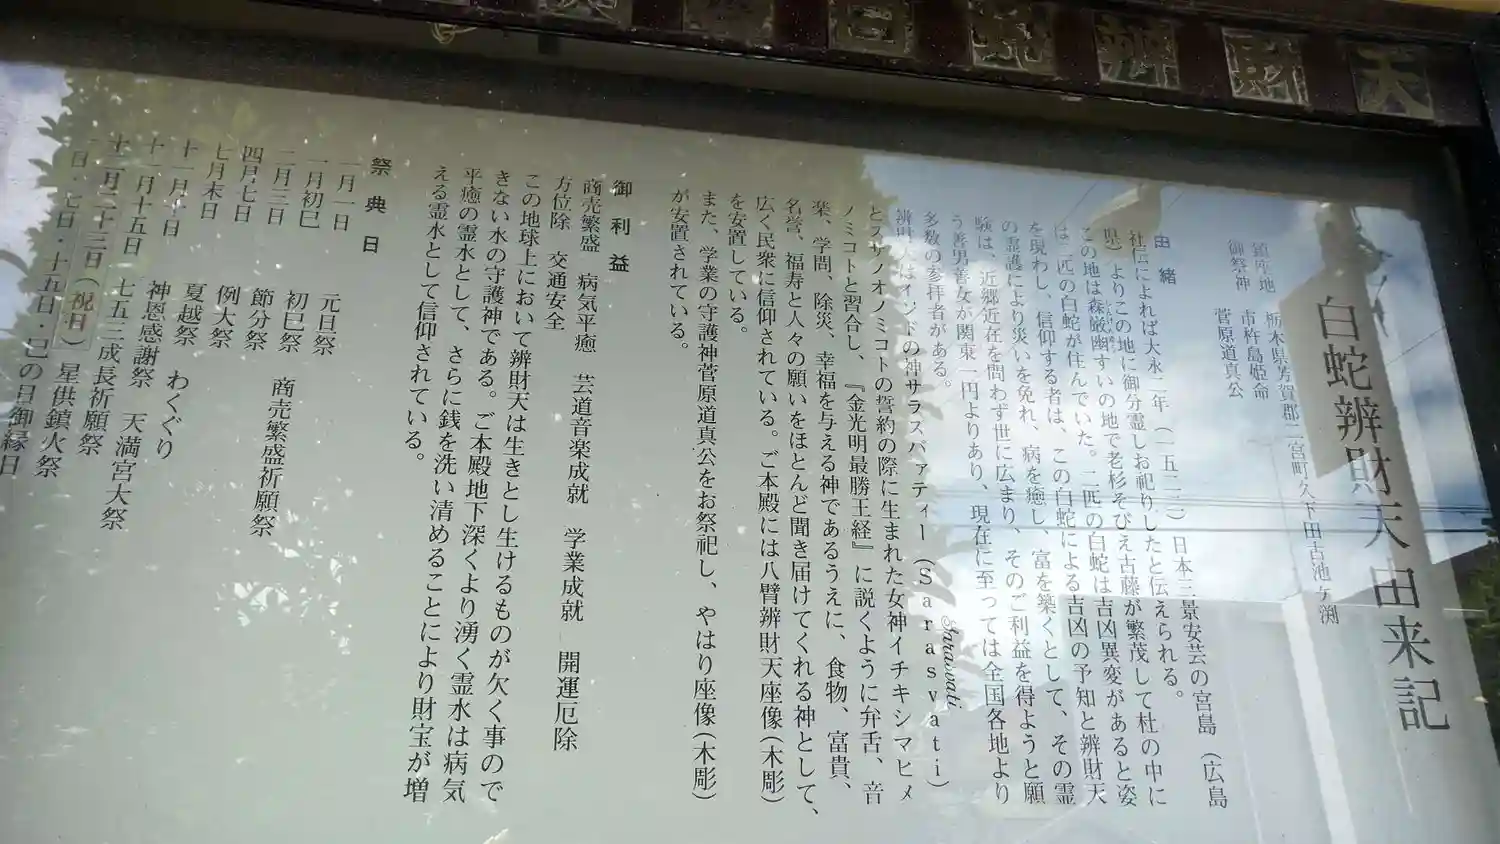 白蛇辨財天
白蛇辨財天由来記
鎮座地 栃木県芳賀郡二宮町久下田古池ケ渕
御祭神 市杵島姫命
菅原道真公
由緒
社伝によれば大永二年(一五二二)日本三景安芸の宮島(広島
県)よりこの地に御分霊しお祀りしたと伝えられる。
この地は森厳幽すいの地で老杉そびえ古藤が繁茂して杜の中に
は二匹の白蛇が住んでいた。二匹の白蛇は吉凶異変があると姿
を現わし、信仰する者は、この白蛇による吉凶の予知と辨財天
の霊護により災いを免れ、病を癒し、富を築くとして、その霊
験は、近郷近在を問わず世に広まり、そのご利益を得ようと願
う善男善女が関東一円よりあり、現在に至っては全国各地より
多数の参拝者がある。
辨財天はインドの神サラスバァティー(Sarasvati)
Sarasvati
とスサノオノミコトの誓約の際に生まれた女神イチキシマヒメ
ノミコトと習合し、『金光明最勝王経』に説くように弁舌、音
楽、学問、除災、幸福を与える神であるうえに、食物、富貴、
名誉、福寿と人々の願いをほとんど聞き届けてくれる神として、
広く民衆に信仰されている。ご本殿には八臂辨財天座像(木彫)
を安置している。
また、学業の守護神菅原道真公をお祭祀し、やはり座像(木彫)
が安置されている。
御利益
商売繁盛 病気平癒 芸道音楽成就 学業成就 開運厄除
方位除 交通安全
この地球上において辨財天は生きとし生けるものが欠く事ので
きない水の守護神である。ご本殿地下深くより湧く霊水は病気
平癒の霊水として、さらに銭を洗い清めることにより財宝が増
える霊水として信仰されている。
祭典日
一月一日 元旦祭
一月初巳 初巳祭 商売繁盛祈願祭
二月三日 節分祭
四月七日 例大祭
七月末日 夏越祭 わくぐり
十一月 日 神恩感謝祭 天満宮大祭
十一月十五日 七五三成長祈願祭
十二月二十三日(祝日) 星供鎮火祭
日・七日・十五日・己の日御縁日